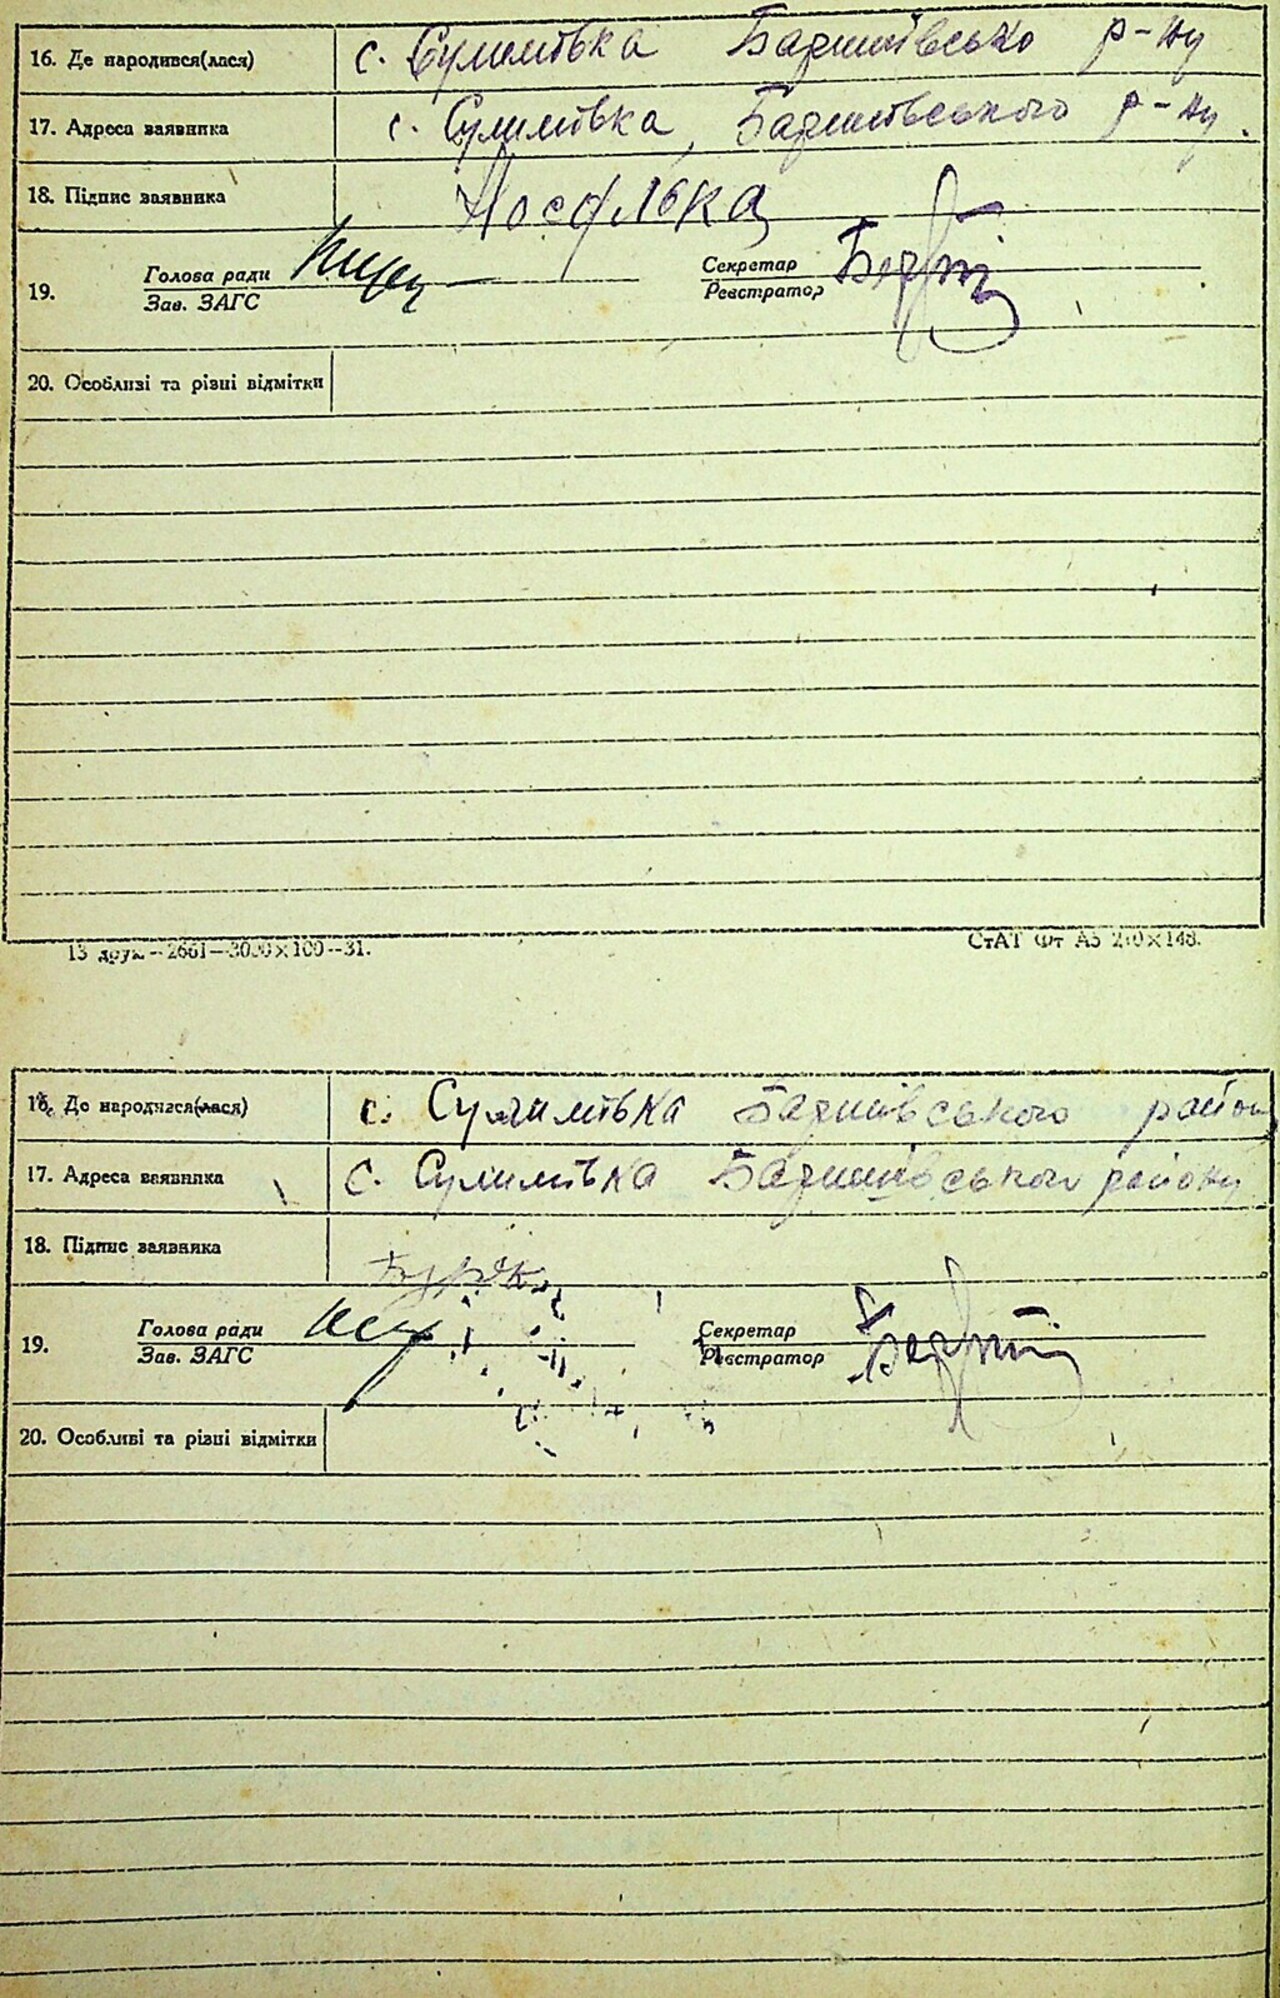 16. Де народився(лася) с. Сулимівка Баришівсько р-ну
17. Адреса заявника с. Сулимівка, Баришівського р-ну.
18. Підпис заявника
19. Голова ради Секретар
Зав. ЗАГС Реєстратор
20. Особливі та різні відмітки
13 друк.—2661—3000×100—31. СтАТ Фт А5 210×148.
16. Де народився(лася) с. Сулимівка Баришівського район
17. Адреса заявника с. Сулимівка Баришівського району
18. Підпис заявника
19. Голова ради Секретар
Зав. ЗАГС Реєстратор
20. Особливі та різні відмітки